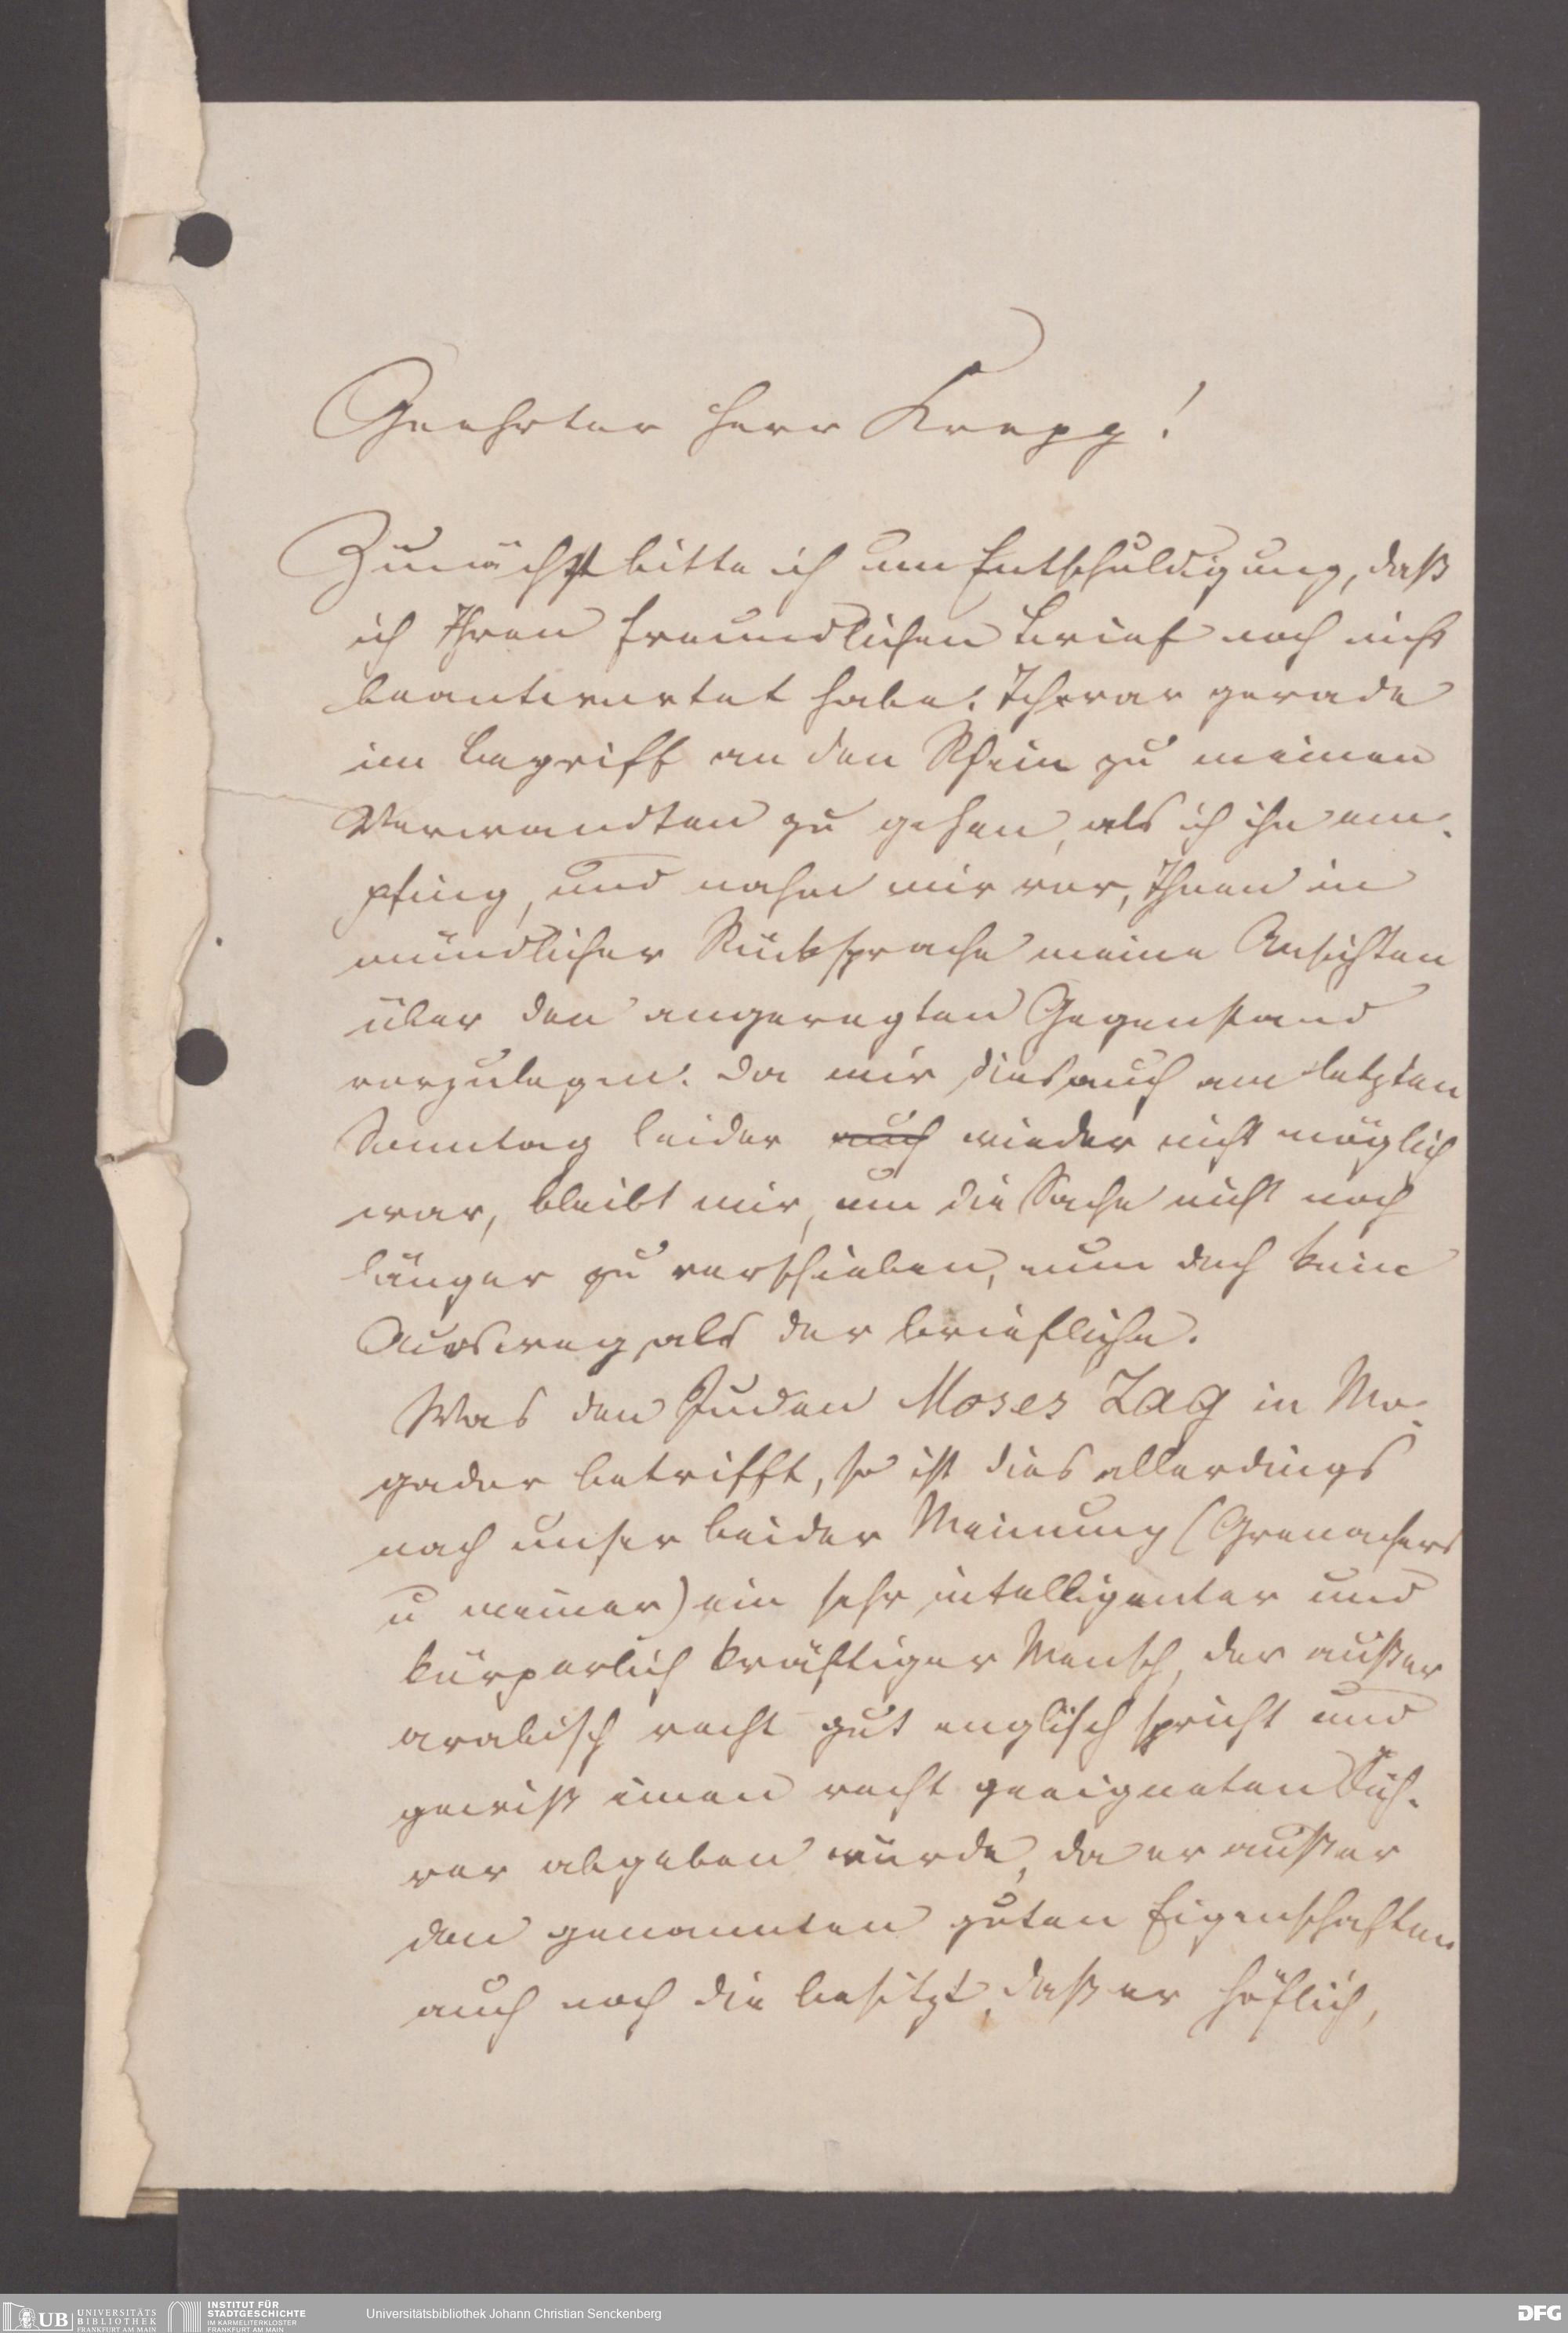 Geehrter Herr Krepp!
Zunächst bitte ich um Entschuldigung, daß
ich Ihren freundlichen Brief noch nicht
beantwortet habe. Ich war gerade
im Begriff an den Rhein zu meinen
Verwandten zu gehen, als ich ihn em-
pfing, und nahm mir vor, Ihnen in
mündlicher Rücksprache meine Ansichten
über den angeregten Gegenstand
vorzulegen. Da mir dies auch am letzten
Sonntag leider auch wieder nicht möglich
war, bleibt mir, um die Sache nicht noch
länger zu verschieben, nun doch kein
Ausweg, als der briefliche.
Was den Juden Moses Zag in Mo-
gador betrifft, so ist dies allerdings
nach unser beider Meinung (Grenachers
u meiner) ein sehr intelligenter und
körperlich kräftiger Mensch, der außer
arabisch recht gut englisch spricht und
gewiß einen recht geeigneten Füh-
rer abgeben würde, da er außer
den genannten guten Eigenschaften
auch noch die besitzt, daß er höflich,
UB UNIVERSITÄTS
BIBLIOTHEK
FRANKFURT AM MAIN
INSTITUT FÜR
STADTGESCHICHTE
IM KARMELITERKLOSTER
FRANKFURT AM MAIN
Universitätsbibliothek Johann Christian Senckenberg
DFG